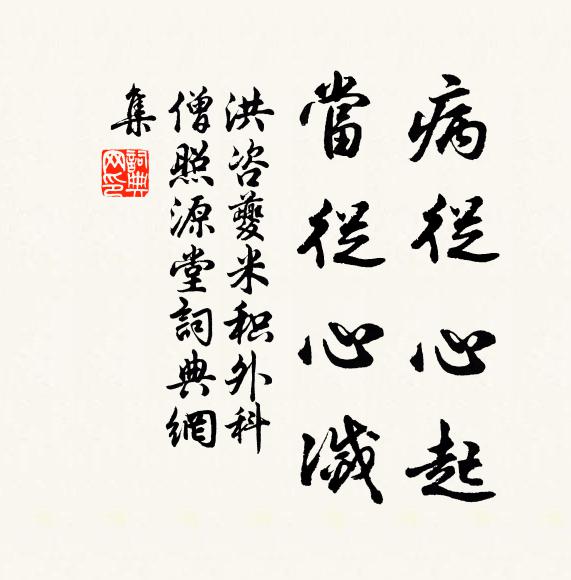 病從心起
當從心滅
洪咨夔米積外科
僧照源堂詞典網
集
詞典网印